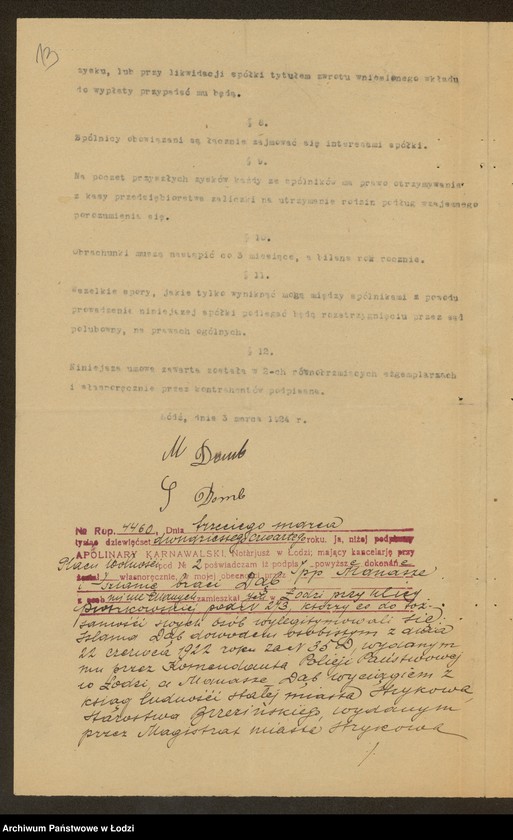 13
zysku, lub przy likwidacji spółki tytułem zwrotu wniesionego wkładu
do wypłaty przypadać mu będą.
§ 8.
Spólnicy obowiązani są łącznie zajmować się interesami spółki.
§ 9.
Na poczet przyszłych zysków każdy ze spólników ma prawo otrzymywania
z kasy przedsiębiorstwa zaliczki na utrzymanie rodzin podług wzajemnego
porozumienia się.
§ 10.
Obrachunki muszą nastąpić co 3 miesiące, a bilans rok rocznie.
§ 11.
Wszelkie spory, jakie tylko wyniknąć mogą między spólnikami z powodu
prowadzenia niniejszej spółki podlegać będą rozstrzygnięciu przez sąd
polubowny, na prawach ogólnych.
§ 12.
Niniejsza umowa zawarta została w 2-ch równobrzmiących egzemplarzach
i własnoręcznie przez kontrahentów podpisana.
Łódź, dnia 3 marca 1924 r.
M Domb
S Domb
№ Rep. 4460, Dnia trzeciego marca
tysiąc dziewięćset dwudziestego czwartego roku. Ja, niżej podpisany
APOLINARY KARNAWALSKI, Notarjusz w Łodzi, mający kancelarję przy
Placu Wolności pod № 2 poświadczam iż podpis powyższy dokonany
własnoręcznie w mojej obecności przez pp. Manasze
i braci Dąb
z osób mi nie znanych zamieszkał ych w Łodzi przy ulicy
Piotrkowskiej pod № 243, którzy co do toż-
samości swych osób wylegitymowali się:
Dąb dowodem osobistym z dnia
22 czerwca 1922 roku za № wydanym
mu przez Komendanta Policji Państwowej
w Łodzi, a Manasze Dąb wyciągiem z
ksiąg ludności stałej miasta Strykowa,
Starostwa Brzezińskiego, wydanym
przez Magistrat miasta Strykowa
Archiwum Państwowe w Łodzi